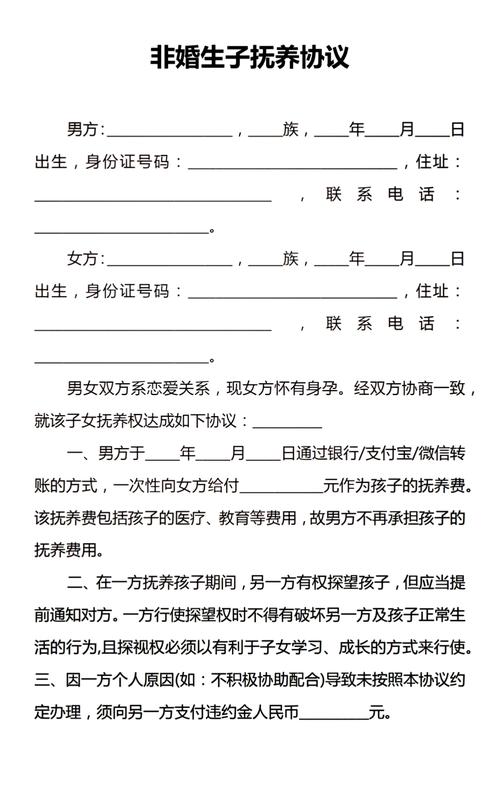 非婚生子抚养协议
男方：________________，____族，____年____月____日
出生，身份证号码：__________________________，住址：
______________________________，联系电话：
______________________。
女方：________________，____族，____年____月____日
出生，身份证号码：__________________________，住址：
______________________________，联系电话：
______________________。
男女双方系恋爱关系，现女方怀有身孕。经双方协商一致，
就该子女抚养权达成如下协议：_________
一、男方于____年____月____日通过银行/支付宝/微信转
账的方式，一次性向女方给付___________元作为孩子的抚养费。
该抚养费包括孩子的医疗、教育等费用，故男方不再承担孩子的
抚养费用。
二、在一方抚养孩子期间，另一方有权探望孩子，但应当提
前通知对方。一方行使探望权时不得有破坏另一方及孩子正常生
活的行为,且探视权必须以有利于子女学习、成长的方式来行使。
三、因一方个人原因(如：不积极协助配合)导致未按照本协议约
定办理，须向另一方支付违约金人民币_________元。